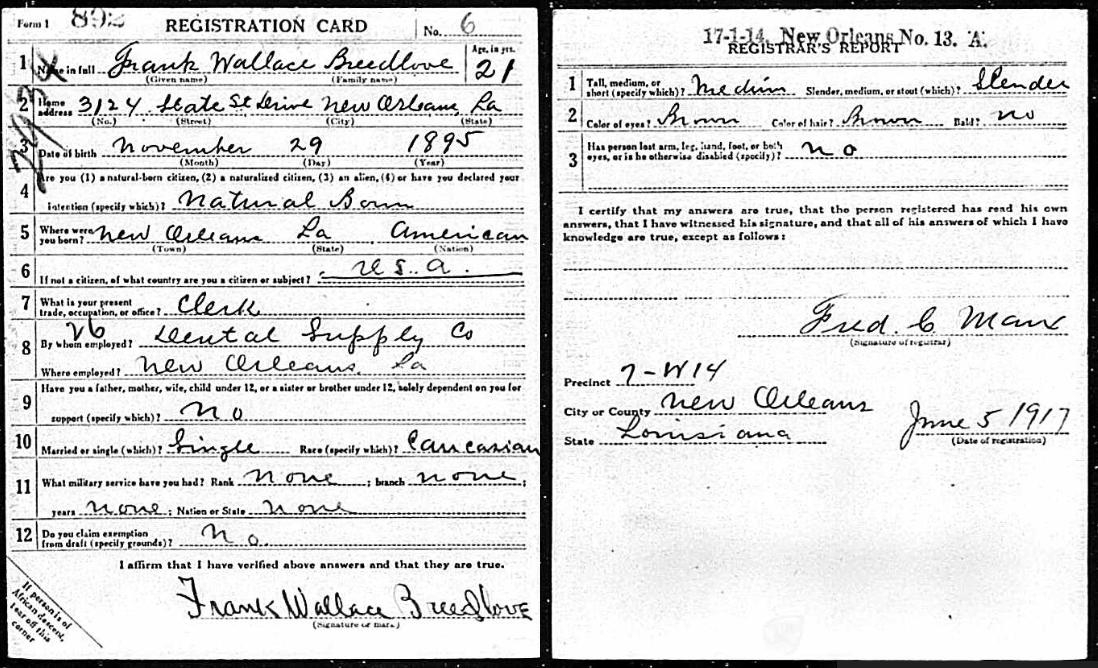 Form 1 892 REGISTRATION CARD No. 6
1 Name in full Frank Wallace Breedlove Age, in yrs. 21
(Given name) (Family name)
2 Home address 3124 State St Drive New Orleans La
(No.) (Street) (City) (State)
3 Date of birth November 29 1895
(Month) (Day) (Year)
4 Are you (1) a natural-born citizen, (2) a naturalized citizen, (3) an alien, (4) or have you declared your
intention (specify which)? Natural Born
5 Where were you born? New Orleans La American
(Town) (State) (Nation)
6 If not a citizen, of what country are you a citizen or subject? U.S.A.
7 What is your present trade, occupation, or office? Clerk
8 By whom employed? Dental Supply Co
Where employed? New Orleans La
9 Have you a father, mother, wife, child under 12, or a sister or brother under 12, solely dependent on you for
support (specify which)? No
10 Married or single (which)? Single Race (specify which)? Caucasian
11 What military service have you had? Rank none ; branch none ;
years none ; Nation or State none
12 Do you claim exemption from draft (specify grounds)? No.
I affirm that I have verified above answers and that they are true.
Frank Wallace Breedlove
(Signature or mark.)
If person is of
African descent,
tear off this
corner
17-1-14. New Orleans No. 13. 'A'.
REGISTRAR'S REPORT
1 Tall, medium, or short (specify which)? Medium Slender, medium, or stout (which)? Slender
2 Color of eyes? Brown Color of hair? Brown Bald? no
3 Has person lost arm, leg, hand, foot, or both
eyes, or is he otherwise disabled (specify)? no
I certify that my answers are true, that the person registered has read his own
answers, that I have witnessed his signature, and that all of his answers of which I have
knowledge are true, except as follows:
Fred. C
(Signature of registrar)
Precinct 7-W14
City or County New Orleans
State Louisiana June 5 1917
(Date of registration)